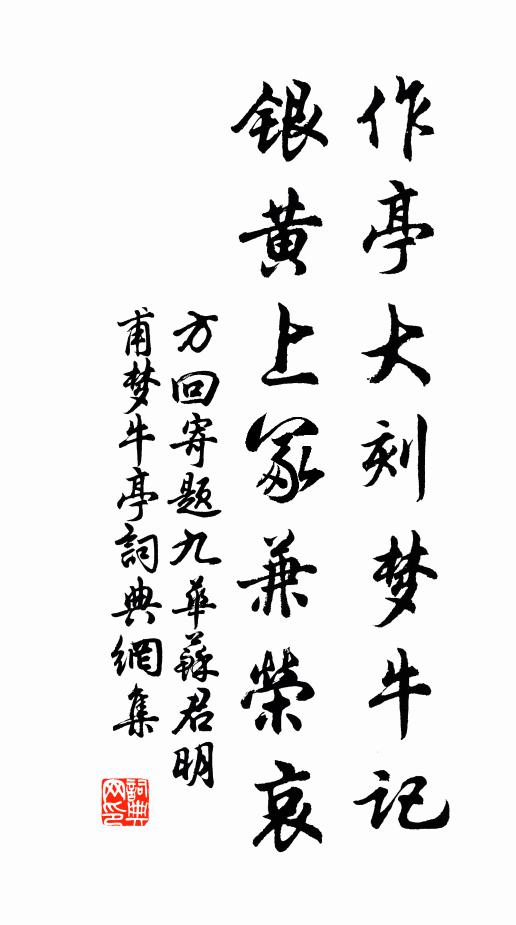 作亭大刻梦牛记
银黄上冢兼荣哀
方回寄题九华苏君明
甫梦牛亭詞典網集
詞典
网印